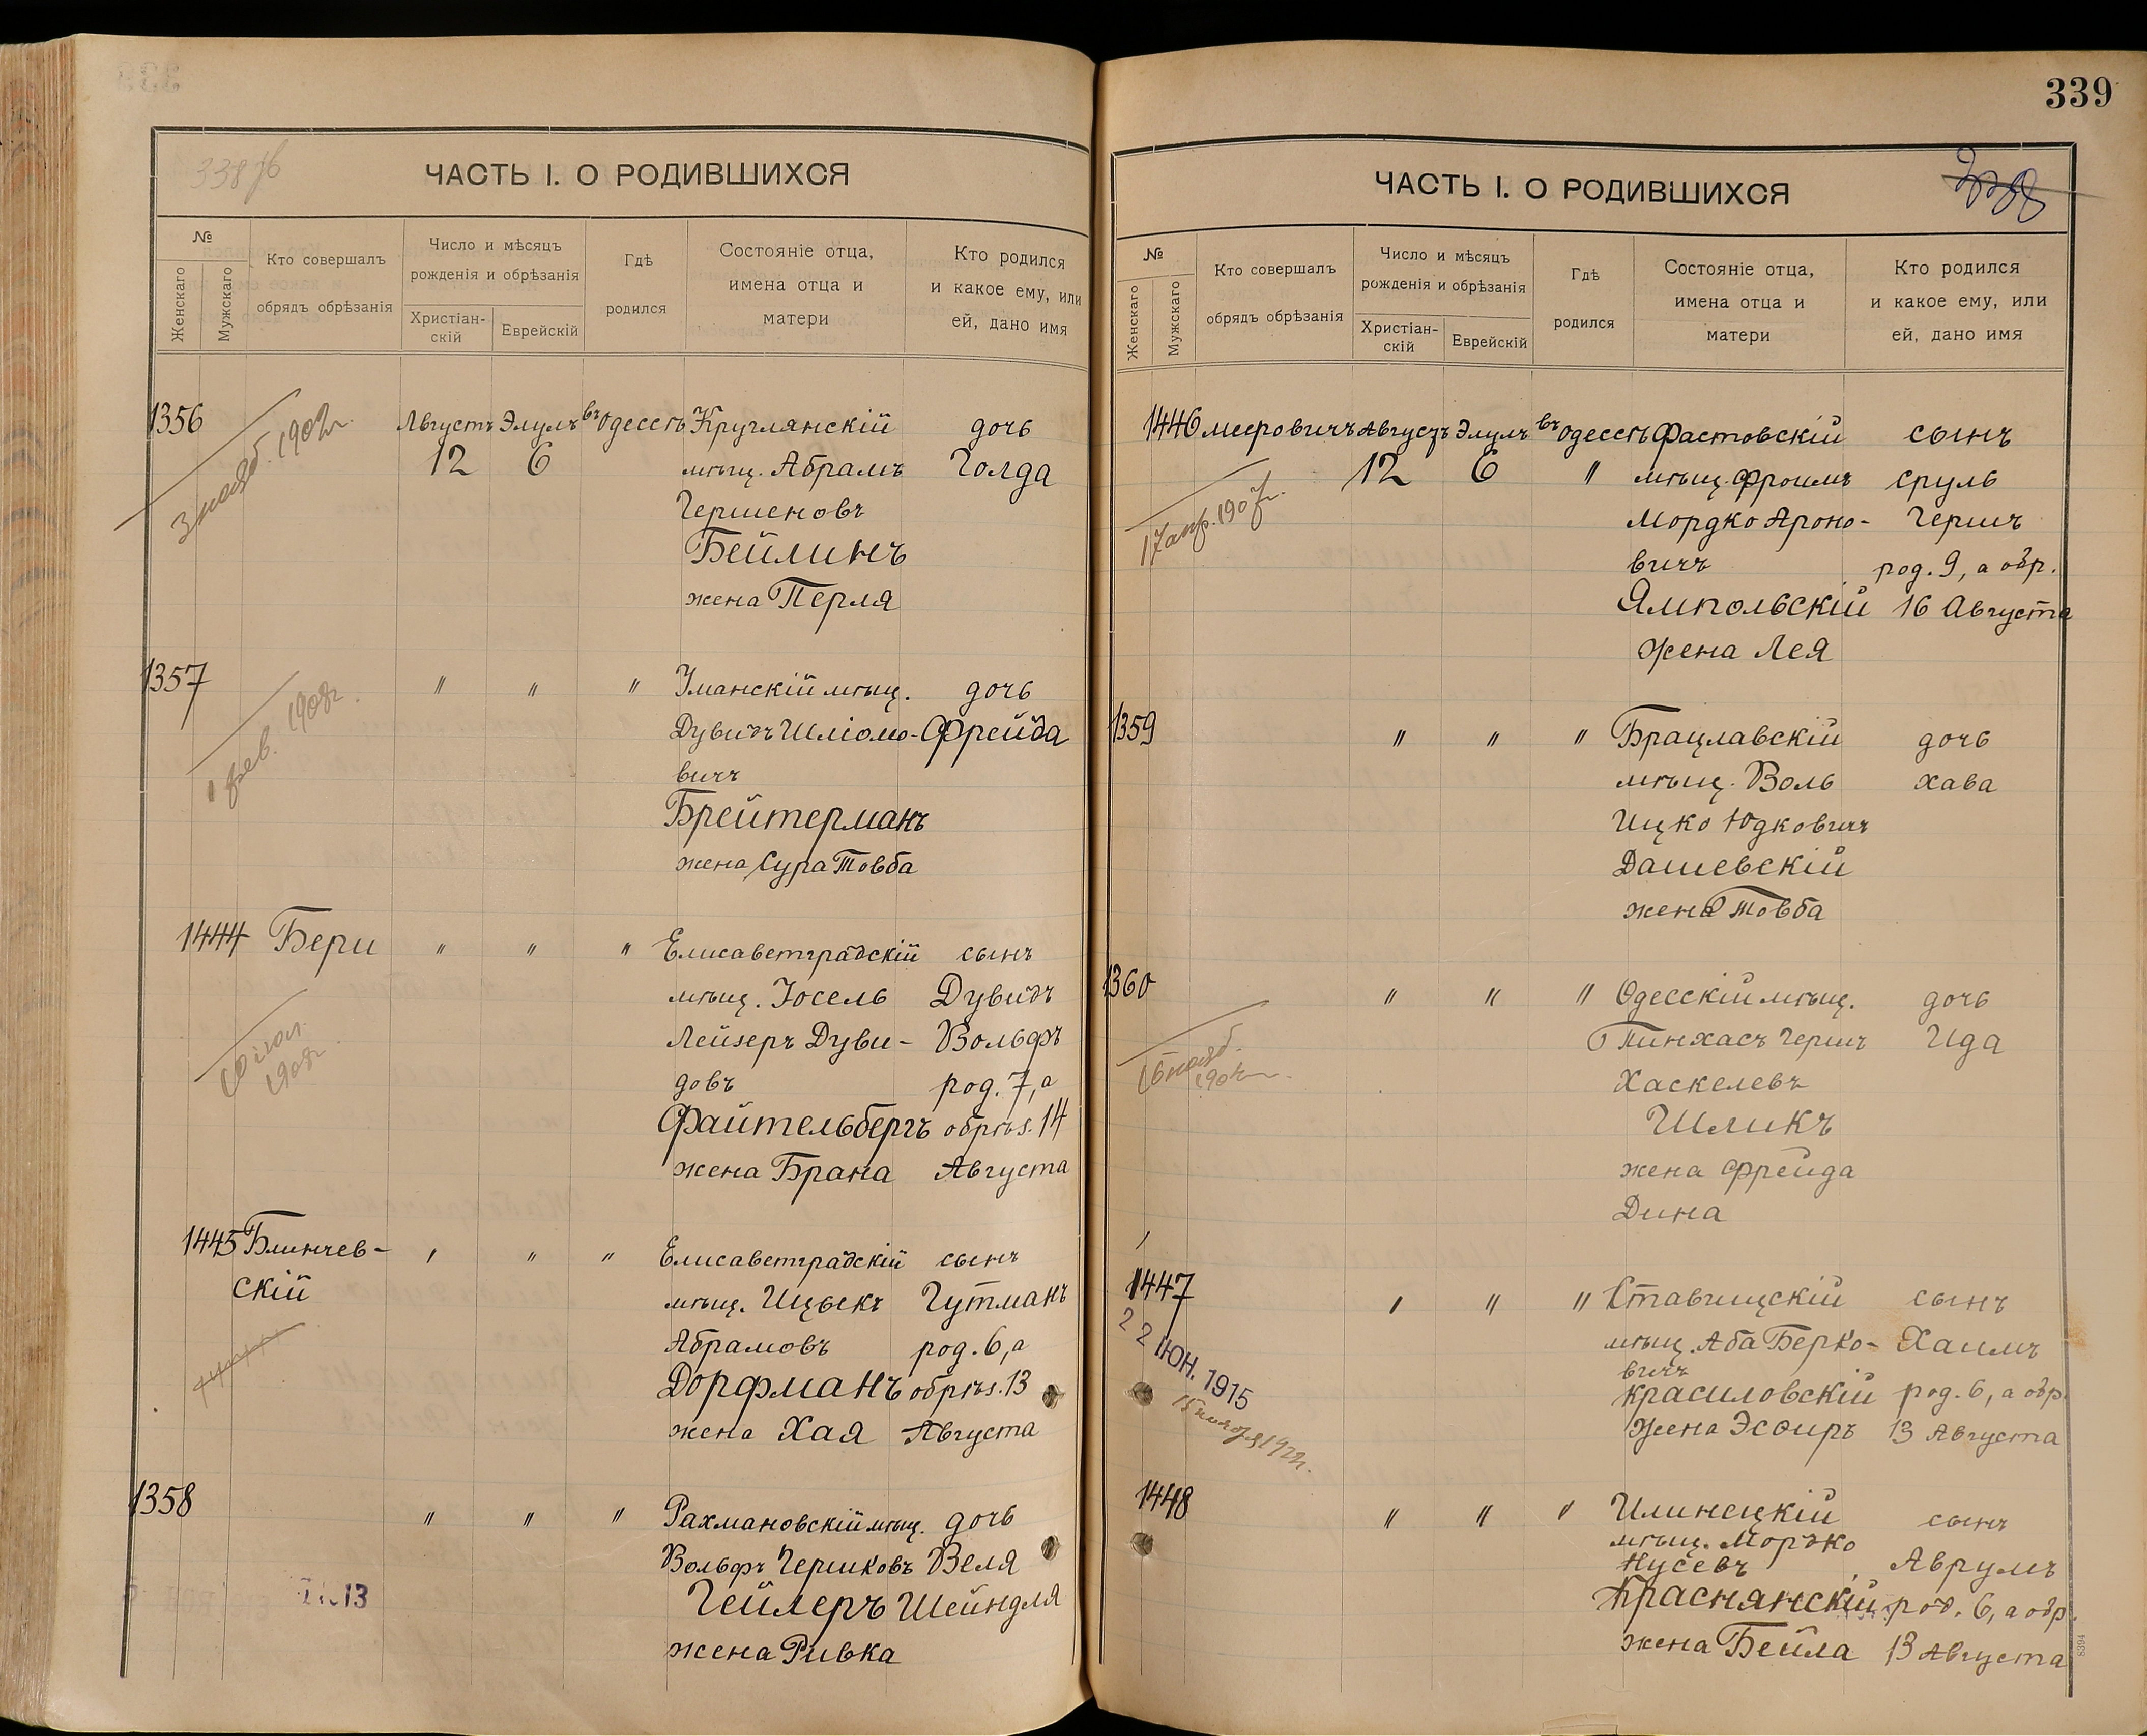 338 об
ЧАСТЬ I. О РОДИВШИХСЯ
№
Женскаго
Мужскаго
Кто совершалъ
обрядъ обрѣзанія
Число и мѣсяцъ
рожденія и обрѣзанія
Христіан-
скій
Еврейскій
Гдѣ
родился
Состояніе отца,
имена отца и
матери
Кто родился
и какое ему, или
ей, дано имя
1356 Августъ Элулъ въ Одессѣ Круглянскій дочь
12 6 мѣщ. Абрамъ Голда
Гершеновъ
Бейлинъ
жена Перля
3 нояб. 1907 г.
1357 " " " Уманскій мѣщ. дочь
Дувидъ Шліомо- Фрейда
вичъ
Брейтерманъ
жена Сура Товба
1 фев. 1908 г.
1444 Бери " " " Елисаветградскій сынъ
мѣщ. Іосель Дувидъ
Лейзеръ Дуви- Вольфъ
довъ род. 7, а
Файтельбергъ обрѣз. 14
жена Брана Августа
1908 г.
1445 Блинчев- " " " Елисаветградскій сынъ
скій мѣщ. Ицыкъ Гутманъ
Абрамовъ род. 6, а
Дорфманъ обрѣз. 13
жена Хая Августа
1358 " " " Рахмановскій мѣщ. дочь
Вольфъ Гершковъ Веля
Гейлеръ Шейндля
жена Ривка
339
ЧАСТЬ I. О РОДИВШИХСЯ
№
Женскаго
Мужскаго
Кто совершалъ
обрядъ обрѣзанія
Число и мѣсяцъ
рожденія и обрѣзанія
Христіан-
скій
Еврейскій
Гдѣ
родился
Состояніе отца,
имена отца и
матери
Кто родился
и какое ему, или
ей, дано имя
1446 Мееровичъ Августъ Элулъ въ Одессѣ Фастовскій сынъ
12 6 " мѣщ. Фроимъ Сруль
Мордко Ароно- Гершъ
вичъ род. 9, а обр.
Ямпольскій 16 Августа
жена Лея
17 апр. 1907 г.
1359 " " " Брацлавскій дочь
мѣщ. Воль хава
Ицко Юдковичъ
Дашевскій
жена Товба
1360 " " " Одесскій мѣщ. дочь
Пинхасъ Гершъ Ида
Хаскелевъ
Шликъ
жена Фрейда
Дина
16 нояб.
1447 " " " Ставищскій сынъ
мѣщ. Аба Берко- Хаимъ
вичъ
Красиловскій род. 6, а обр.
жена Эсѳирь 13 Августа
22 ІЮН. 1915
1448 " " " Илинецкій сынъ
мѣщ. Мордко
Нусевъ Аврумъ
Краснянскій род. 6, а обр.
жена Бейла 13 Августа
8394